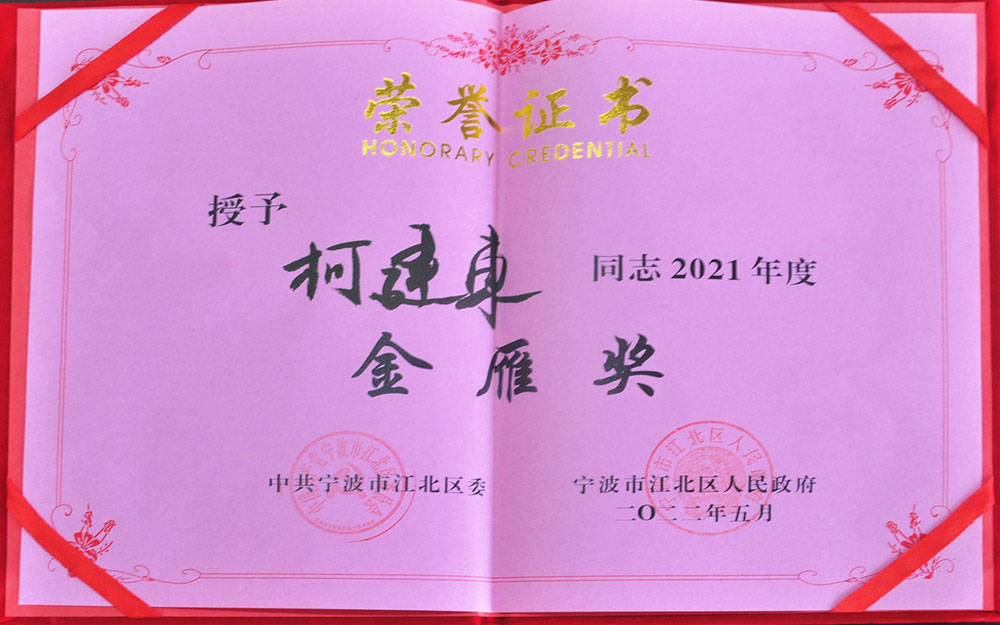 荣誉证书
HONORARY CREDENTIAL
授予
柯建東 同志 2021 年度
金雁奖
中共宁波市江北区委 宁波市江北区人民政府
二〇二二年五月